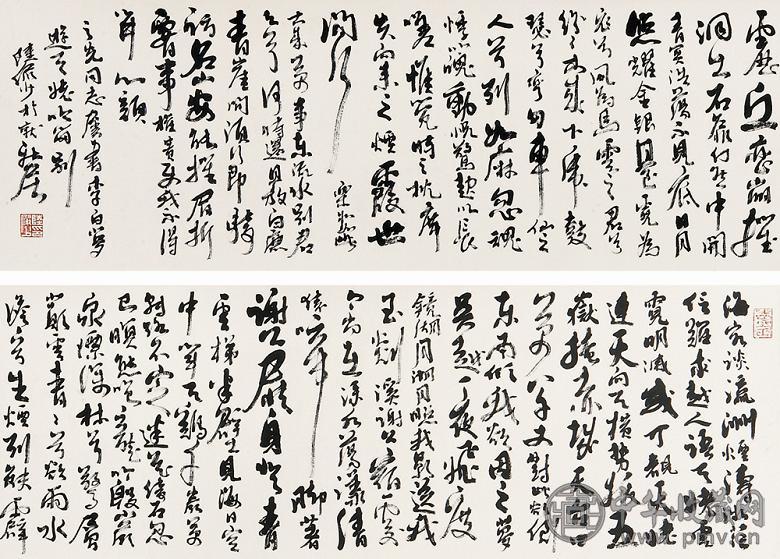 海客談瀛洲煙濤微茫
信難求越人語天姥雲
霓明滅或可覩天姥
連天向天橫勢拔五
嶽掩赤城天台四
萬八千丈對此欲倒
東南傾我欲因之夢
吳越一夜飛度
鏡湖月湖月照我影送我
至剡溪謝公宿處
今尚在淥水蕩漾清
猿啼脚著
謝公屐身登青
雲梯半壁見海日空
中聞天雞千巖萬
轉路不定迷花倚石忽
已暝熊咆龍吟殷巖
泉慄深林兮驚層
巔雲青青兮欲雨水
澹澹兮生煙列缺霹
靂丘巒崩摧
洞天石扉訇然中開
青冥浩蕩不見底日月
照耀金銀臺霓為
衣兮風為馬雲之君兮
紛紛而來下虎鼓
瑟兮鸞回車仙之
人兮列如麻忽魂
悸以魄動怳驚起而長
嗟惟覺時之枕席
失向來之煙霞世
間行樂亦如此
古來萬事東流水別君
去兮何時還且放白鹿
青崖間須行即騎
訪名山安能摧眉折
腰事權貴使我不得
開心顏
之光同志屬書李白夢
遊天姥吟留別
陸儼少於
中华收藏网
www.pmv.cn